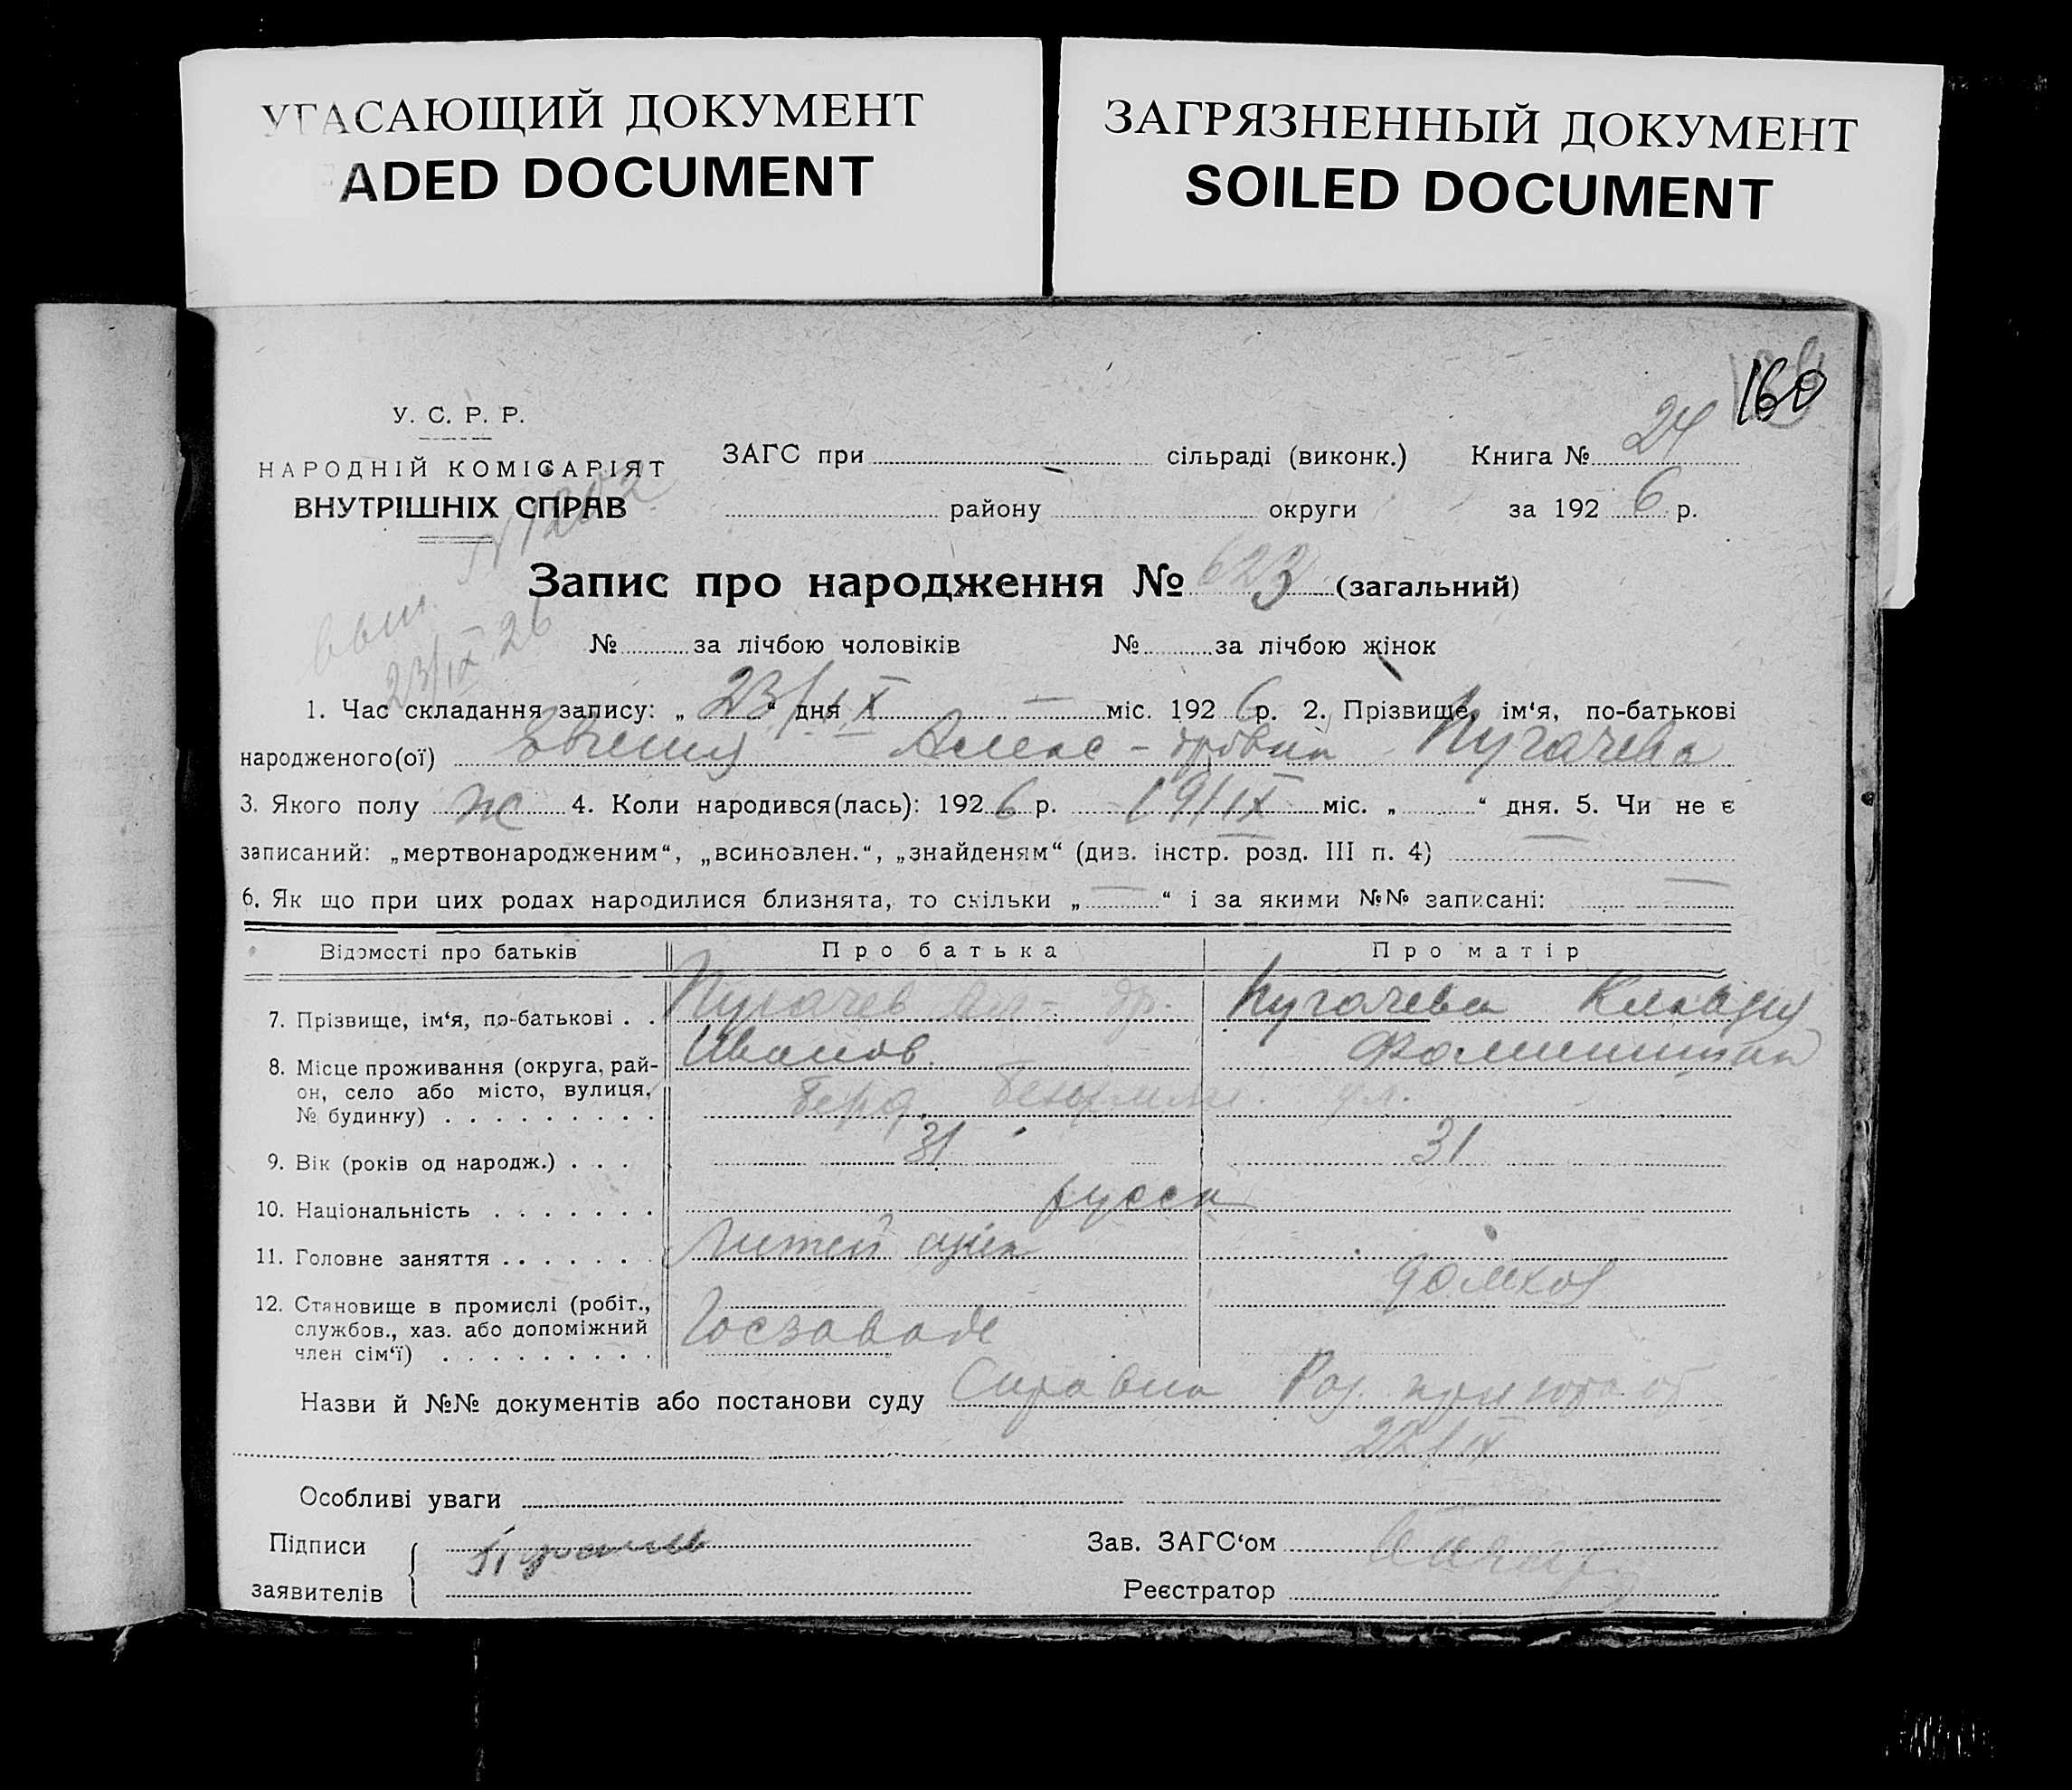 УГАСАЮЩИЙ ДОКУМЕНТ
ADED DOCUMENT
ЗАГРЯЗНЕННЫЙ ДОКУМЕНТ
SOILED DOCUMENT
160
У. С. Р. Р.
НАРОДНІЙ КОМІСАРІЯТ
ВНУТРІШНІХ СПРАВ
ЗАГС при сільраді (виконк.) Книга № 24
району округи за 1926 р.
N 1202
Запис про народження № 623 (загальний)
23/IX 26
№ за лічбою чоловіків № за лічбою жінок
1. Час складання запису: „ 23/IX “ дня — міс. 1926 р. 2. Прізвище, ім‘я, по-батькові
народженого(ої) Евгения Алекс-дровна Пугачева
3. Якого полу ж 4. Коли народився(лась): 1926 р. 19/IX міс. „ “ дня. 5. Чи не є
записаний: „мертвонародженим“, „всиновлен.“, „знайденям“ (див. інстр. розд. III п. 4) —
6. Як що при цих родах народилися близнята, то скільки „ — “ і за якими №№ записані: —
Відомості про батьків Про батька Про матір
7. Прізвище, ім‘я, по-батькові . . Пугачев Ал-др. Иванов. Пугачева Клавдия
8. Місце проживання (округа, рай-
он, село або місто, вулиця,
№ будинку) . . . . . . . . . Берд. ул.
9. Вік (років од народж.) . . . 31 31
10. Національність . . . . . . . русск
11. Головне заняття . . . . . . Литей домхоз
12. Становище в промислі (робіт.,
службов., хаз. або допоміжний
член сім‘ї) . . . . . . . . . Госзаводе
Назви й №№ документів або постанови суду Справка Род. приюта от
22/IX
Особливі уваги
Підписи
заявителів
Зав. ЗАГС‘ом
Реєстратор